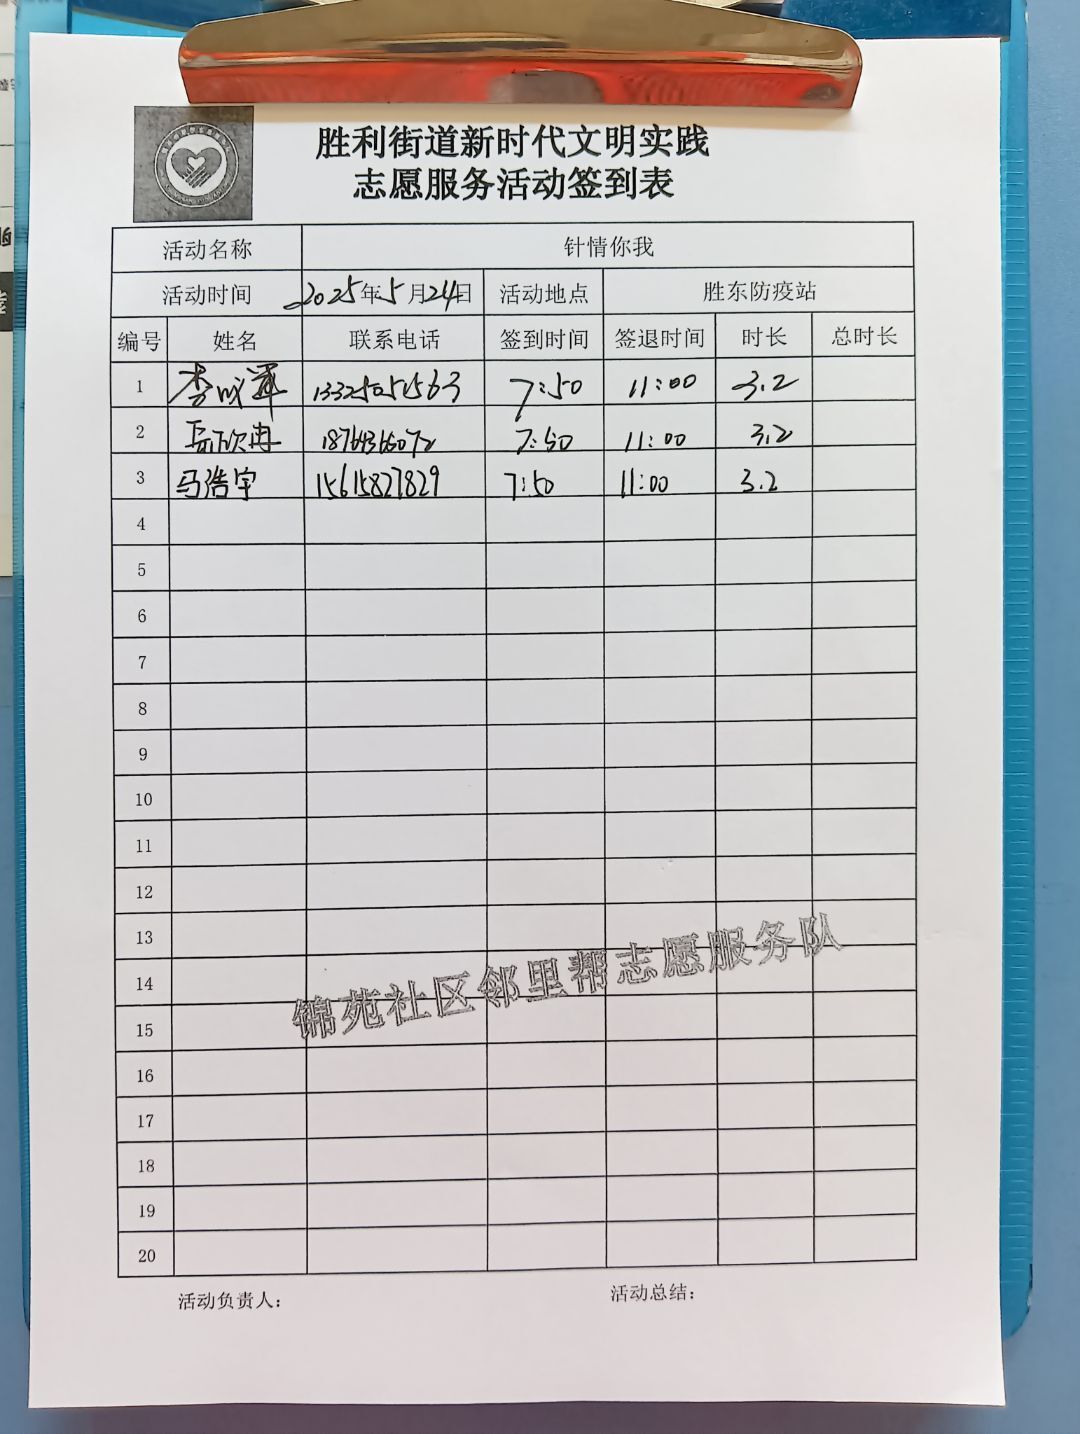 胜利街道新时代文明实践
志愿服务活动签到表
活动名称 针情你我
活动时间 2025年5月24日 活动地点 胜东防疫站
编号 姓名 联系电话 签到时间 签退时间 时长 总时长
1 李 13325051563 7:50 11:00 3.2
2 18764366072 7:50 11:00 3.2
3 马浩宇 15615827829 7:50 11:00 3.2
4
5
6
7
8
9
10
11
12
13
14
15
16
17
18
19
20
锦苑社区邻里帮志愿服务队
活动负责人: 活动总结: